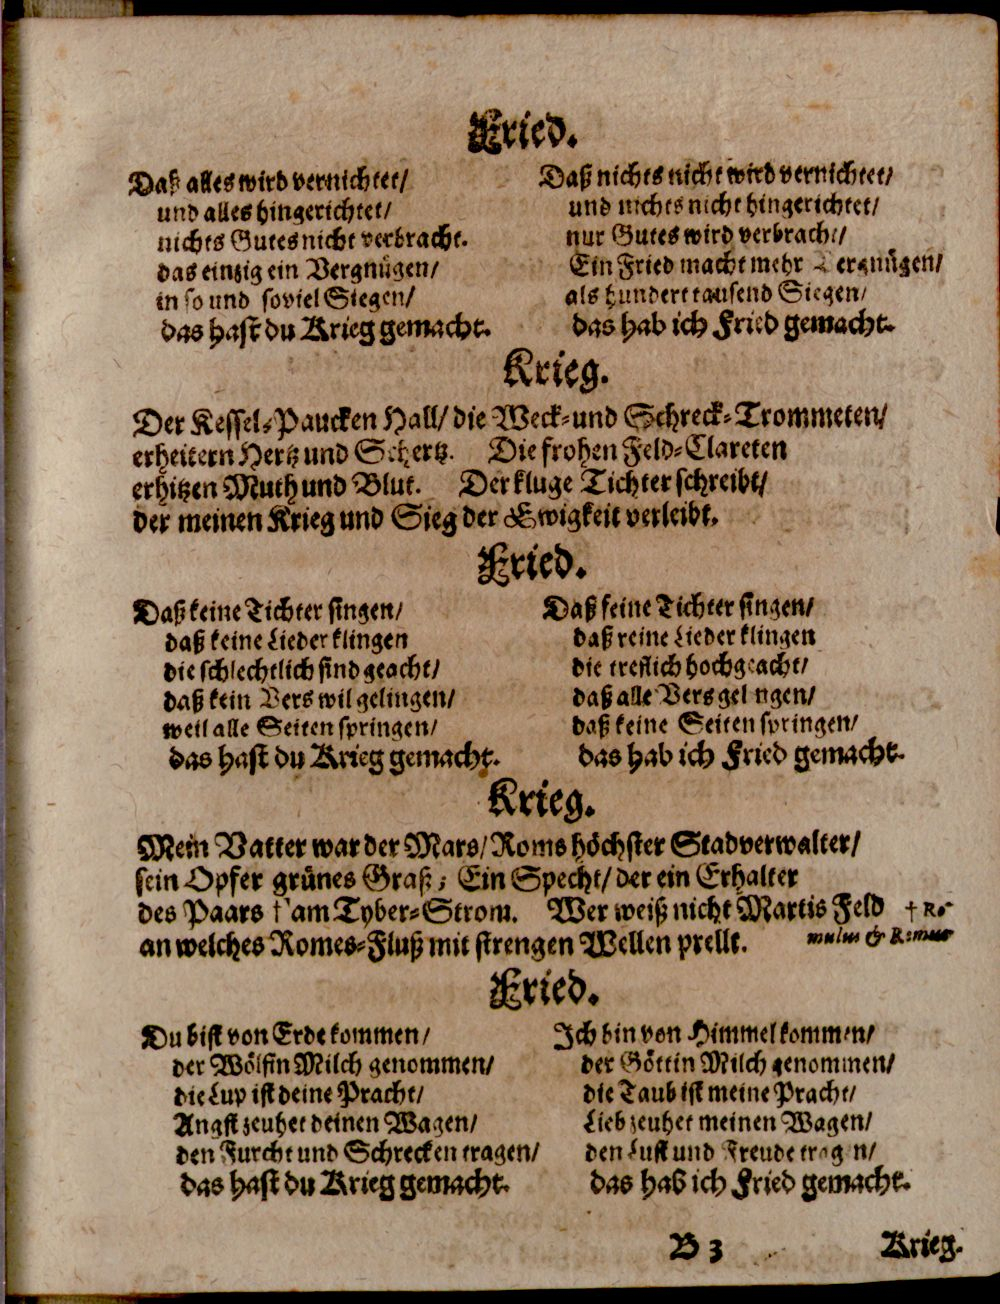 Fried.
Daß alles wird vernichtet/
und alles hingerichtet/
nichts Gutes nicht verbracht.
das einzig ein Vergnügen/
in so und soviel Siegen/
das hast du Krieg gemacht.
Daß nichts nicht wird vernichtet/
und nichts nicht hingerichtet/
nur Gutes wird verbracht/
Ein Fried macht mehr Vergnügen/
als hundert tausend Siegen/
das hab ich Fried gemacht.
Krieg.
Der Kessel-Paucken Hall/ die Weck-und Schreck-Trommeten/
erheitern Hertz und Schertz. Die frohen Feld-Clareten
erhitzen Muth und Blut. Der kluge Tichter schreibt/
der meinen Krieg und Sieg der Ewigkeit verleibt.
Fried.
Daß keine Tichter singen/
daß keine Lieder klingen
die schlechtlich sind geacht/
daß kein Vers wil gelingen/
weil alle Seiten springen/
das hast du Krieg gemacht.
Daß feine Tichter singen/
daß reine Lieder klingen
die treflich hochgeacht/
daß alle Vers gelingen/
daß keine Seiten springen/
das hab ich Fried gemacht.
Krieg.
Mein Vatter war der Mars/ Roms höchster Stadverwalter/
sein Opfer grünes Graß; Ein Specht/ der ein Erhalter
des Paars † am Tyber-Strom. Wer weiß nicht Martis Feld
an welches Romes-Fluß mit strengen Wellen prellt.
† Ro-
mulus & Remus
Fried.
Du bist von Erde kommen/
der Wölfin Milch genommen/
die Lup ist deine Pracht/
Angst zeuhet deinen Wagen/
den Furcht und Schrecken tragen/
das hast du Krieg gemacht.
Ich bin von Himmel kommen/
der Göttin Milch genommen/
die Taub ist meine Pracht/
Lieb zeuhet meinen Wagen/
den Lust und Freude tragen/
das hab ich Fried gemacht.
B 3
Krieg.